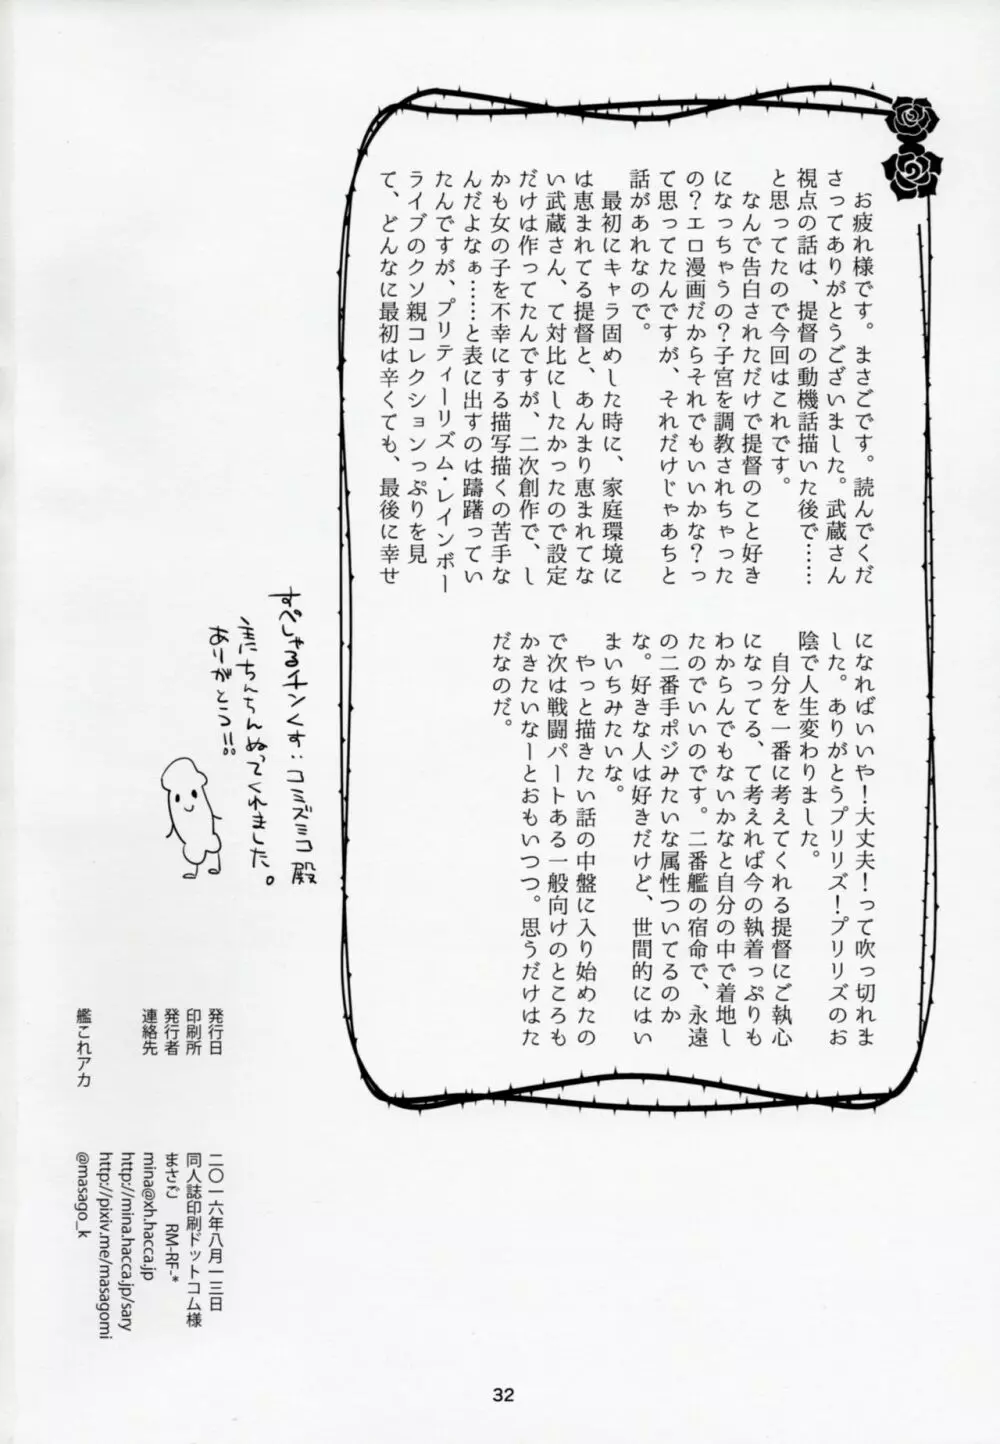 お疲れ様です。まさごです。読んでくだ
さってありがとうございました。武蔵さん
視点の話は、提督の動機話描いた後で……
と思ってたので今回はこれです。
なんで告白されただけで提督のこと好き
になっちゃうの?子宮を調教されちゃった
の?エロ漫画だからそれでもいいかな?っ
て思ってたんですが、それだけじゃあちと
話があれなので。
最初にキャラ固めした時に、家庭環境に
は恵まれてる提督と、あんまり恵まれてな
い武蔵さん、て対比にしたかったので設定
だけは作ってたんですが、二次創作で、し
かも女の子を不幸にする描写描くの苦手な
んだよなぁ……と表に出すのは躊躇ってい
たんですが、プリティーリズム・レインボー
ライブのクソ親コレクションっぷりを見
て、どんなに最初は辛くても、最後に幸せ
になればいいや!大丈夫!って吹っ切れま
した。ありがとうプリリズ!プリリズのお
陰で人生変わりました。
自分を一番に考えてくれる提督にご執心
になってる、て考えれば今の執着っぷりも
わからんでもないかなと自分の中で着地し
たのでいいのです。二番艦の宿命で、永遠
の二番手ポジみたいな属性ついてるのか
な。好きな人は好きだけど、世間的にはい
まいちみたいな。
やっと描きたい話の中盤に入り始めたの
で次は戦闘パートある一般向けのところも
かきたいなーとおもいつつ。思うだけはた
だなのだ。
すぺしゃるチンくす:コミズミコ殿
主にちんちんぬってくれました。
ありがとう!!
発行日 二〇一六年八月一三日
印刷所 同人誌印刷ドットコム様
発行者 まさごん RM-RF-*
連絡先 mina@xh.hacca.jp
http://mina.hacca.jp/sary
http://pixiv.me/masagomi
艦これアカ @masago_k
32